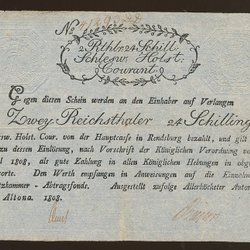 No
2 Rthlr. 24 Schill.
Schlesw. Holst.
Courant.
Gegen diesen Schein werden an den Einhaber auf Verlangen
Zwey Reichsthaler 24 Schilling
esw. Holst. Cour. von der Hauptcasse in Rendsburg bezahlt, und gilt
zu dessen Einlösung, nach Vorschrift der Königlichen Verordnung vo
1808, als gute Zahlung in allen Königlichen Hebungen in
orten. Den Werth empfangen in Anweisungen auf die Einwechsl
tzkammer-Abtragsfonds. Ausgestellt zufolge Allerhöchster Autor
Altona 1808.